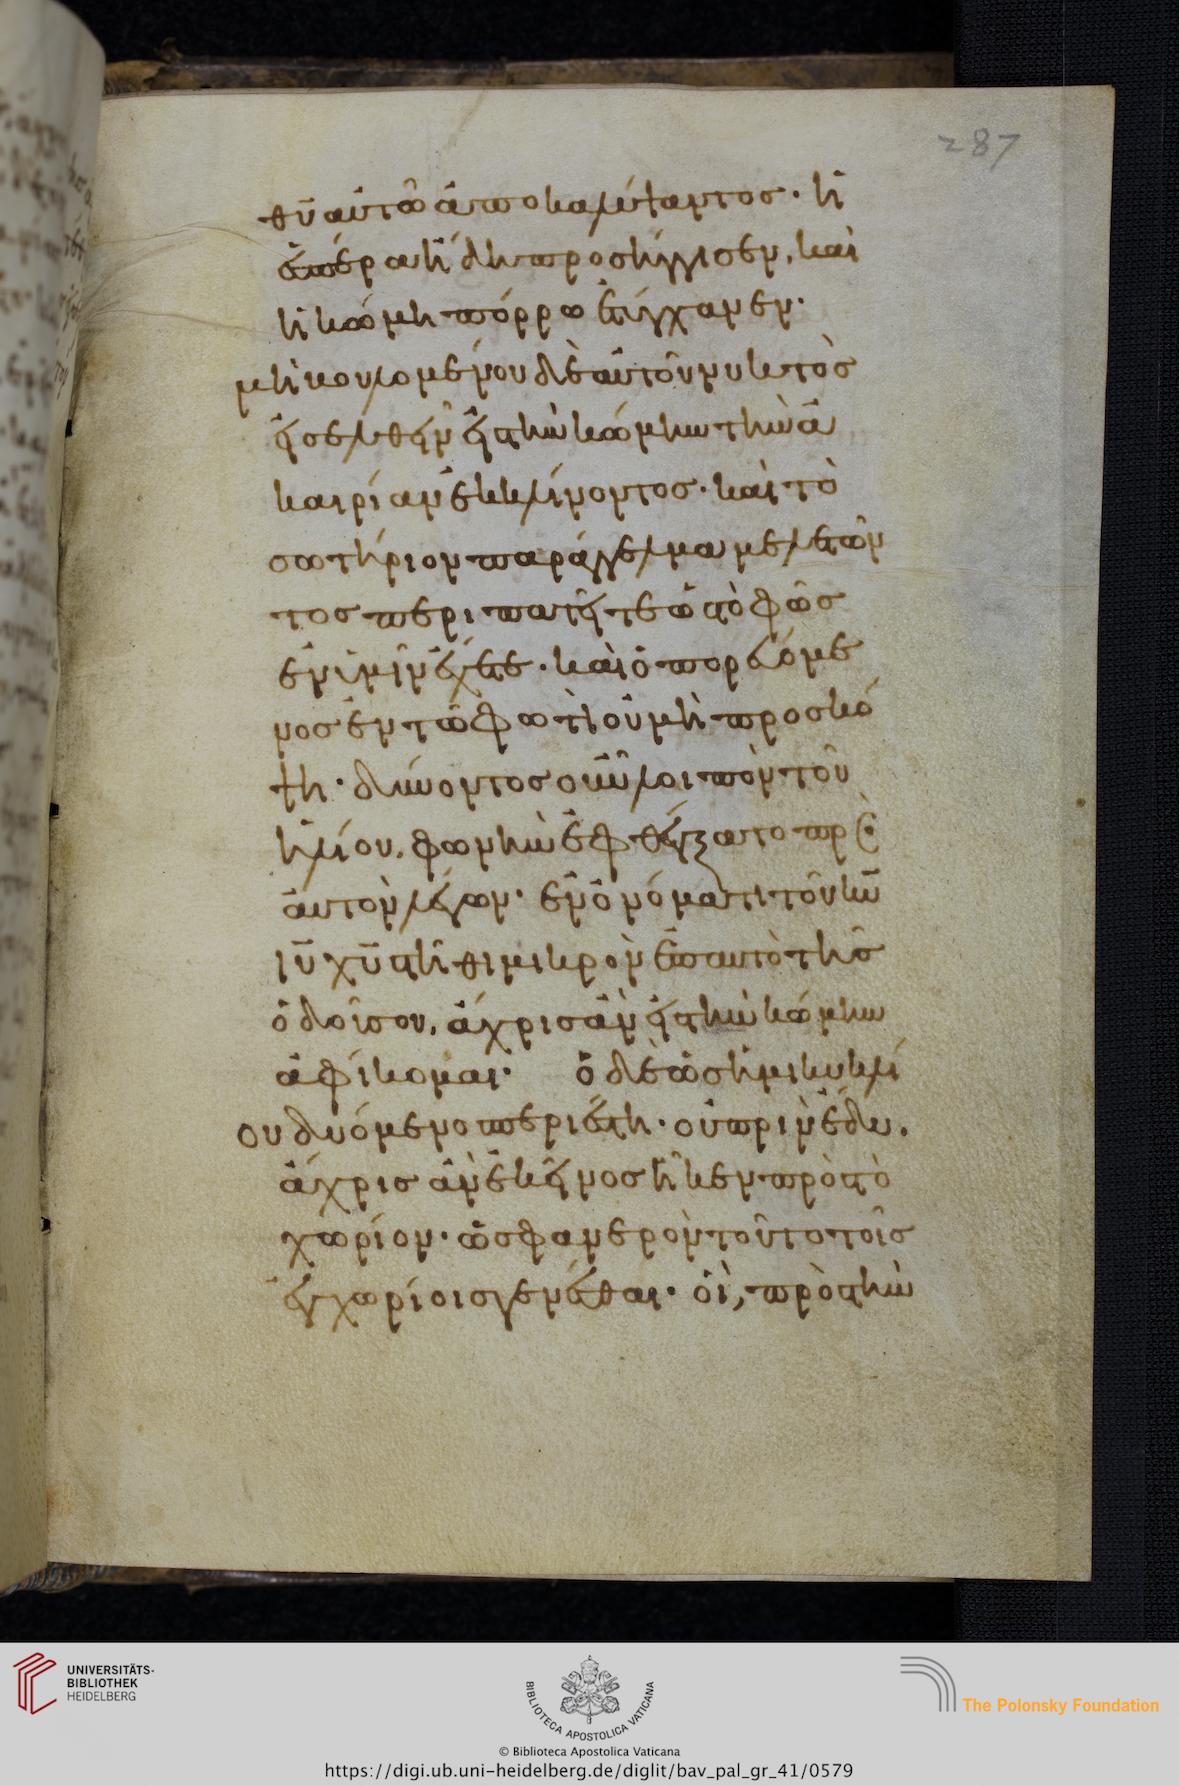 287
θῡ αὐτῶ ἀποκαλύψαντος· ἡ
ἑσπέρα ἤδη προσήγγισεν, καὶ
ἡ κώμη πόρρω ἐτύγχανεν·
μὴ βουλομένου δὲ αὐτοῦ νυκτὸς
εἰσελθεῖν εἰς τὴν κώμην τὴν ἀ
καιρίαν ἐκκλίνοντος· καὶ τὸ
σωτήριον παράγγελμα μελετῶν
τος περιπατεῖτε ὡς τὸ φῶς
ἐν ὑμῖν ἔχετε· καὶ ὁ πορευόμε
νος ἐν τῶ φωτὶ οὐ μὴ προσκό
ψη· δύνοντος οὖν λοιπὸν τοῦ
ἡλίου, φωνὴν ἐφθέγξατο πρὸς
αὐτὸν λέγων· ἐν ὀνόματι τοῦ κῡ
ιῡ χῡ στῆθι μικρὸν εἰς αὐτὸ τῆς
ὁδοῖ σου, ἄχρις ἂν εἰς τὴν κώμην
ἀφίκομαι· ὁ δὲ ὡς ἡμικυκλί
ου δυόμενο περιέστη· οὐ πρὶν ἔδυ,
ἄχρις ἂν ἐκεῖνος ἧκεν πρὸς τὸ
χωρίον· ὡς φανερὸν τοῦτο τοῖς
ἐγχωρίοις γενέσθαι· οἳ, πρὸς τὴν
UNIVERSITÄTS-
BIBLIOTHEK
HEIDELBERG
BIBLIOTECA APOSTOLICA VATICANA
The Polonsky Foundation
© Biblioteca Apostolica Vaticana
https://digi.ub.uni-heidelberg.de/diglit/bav_pal_gr_41/0579